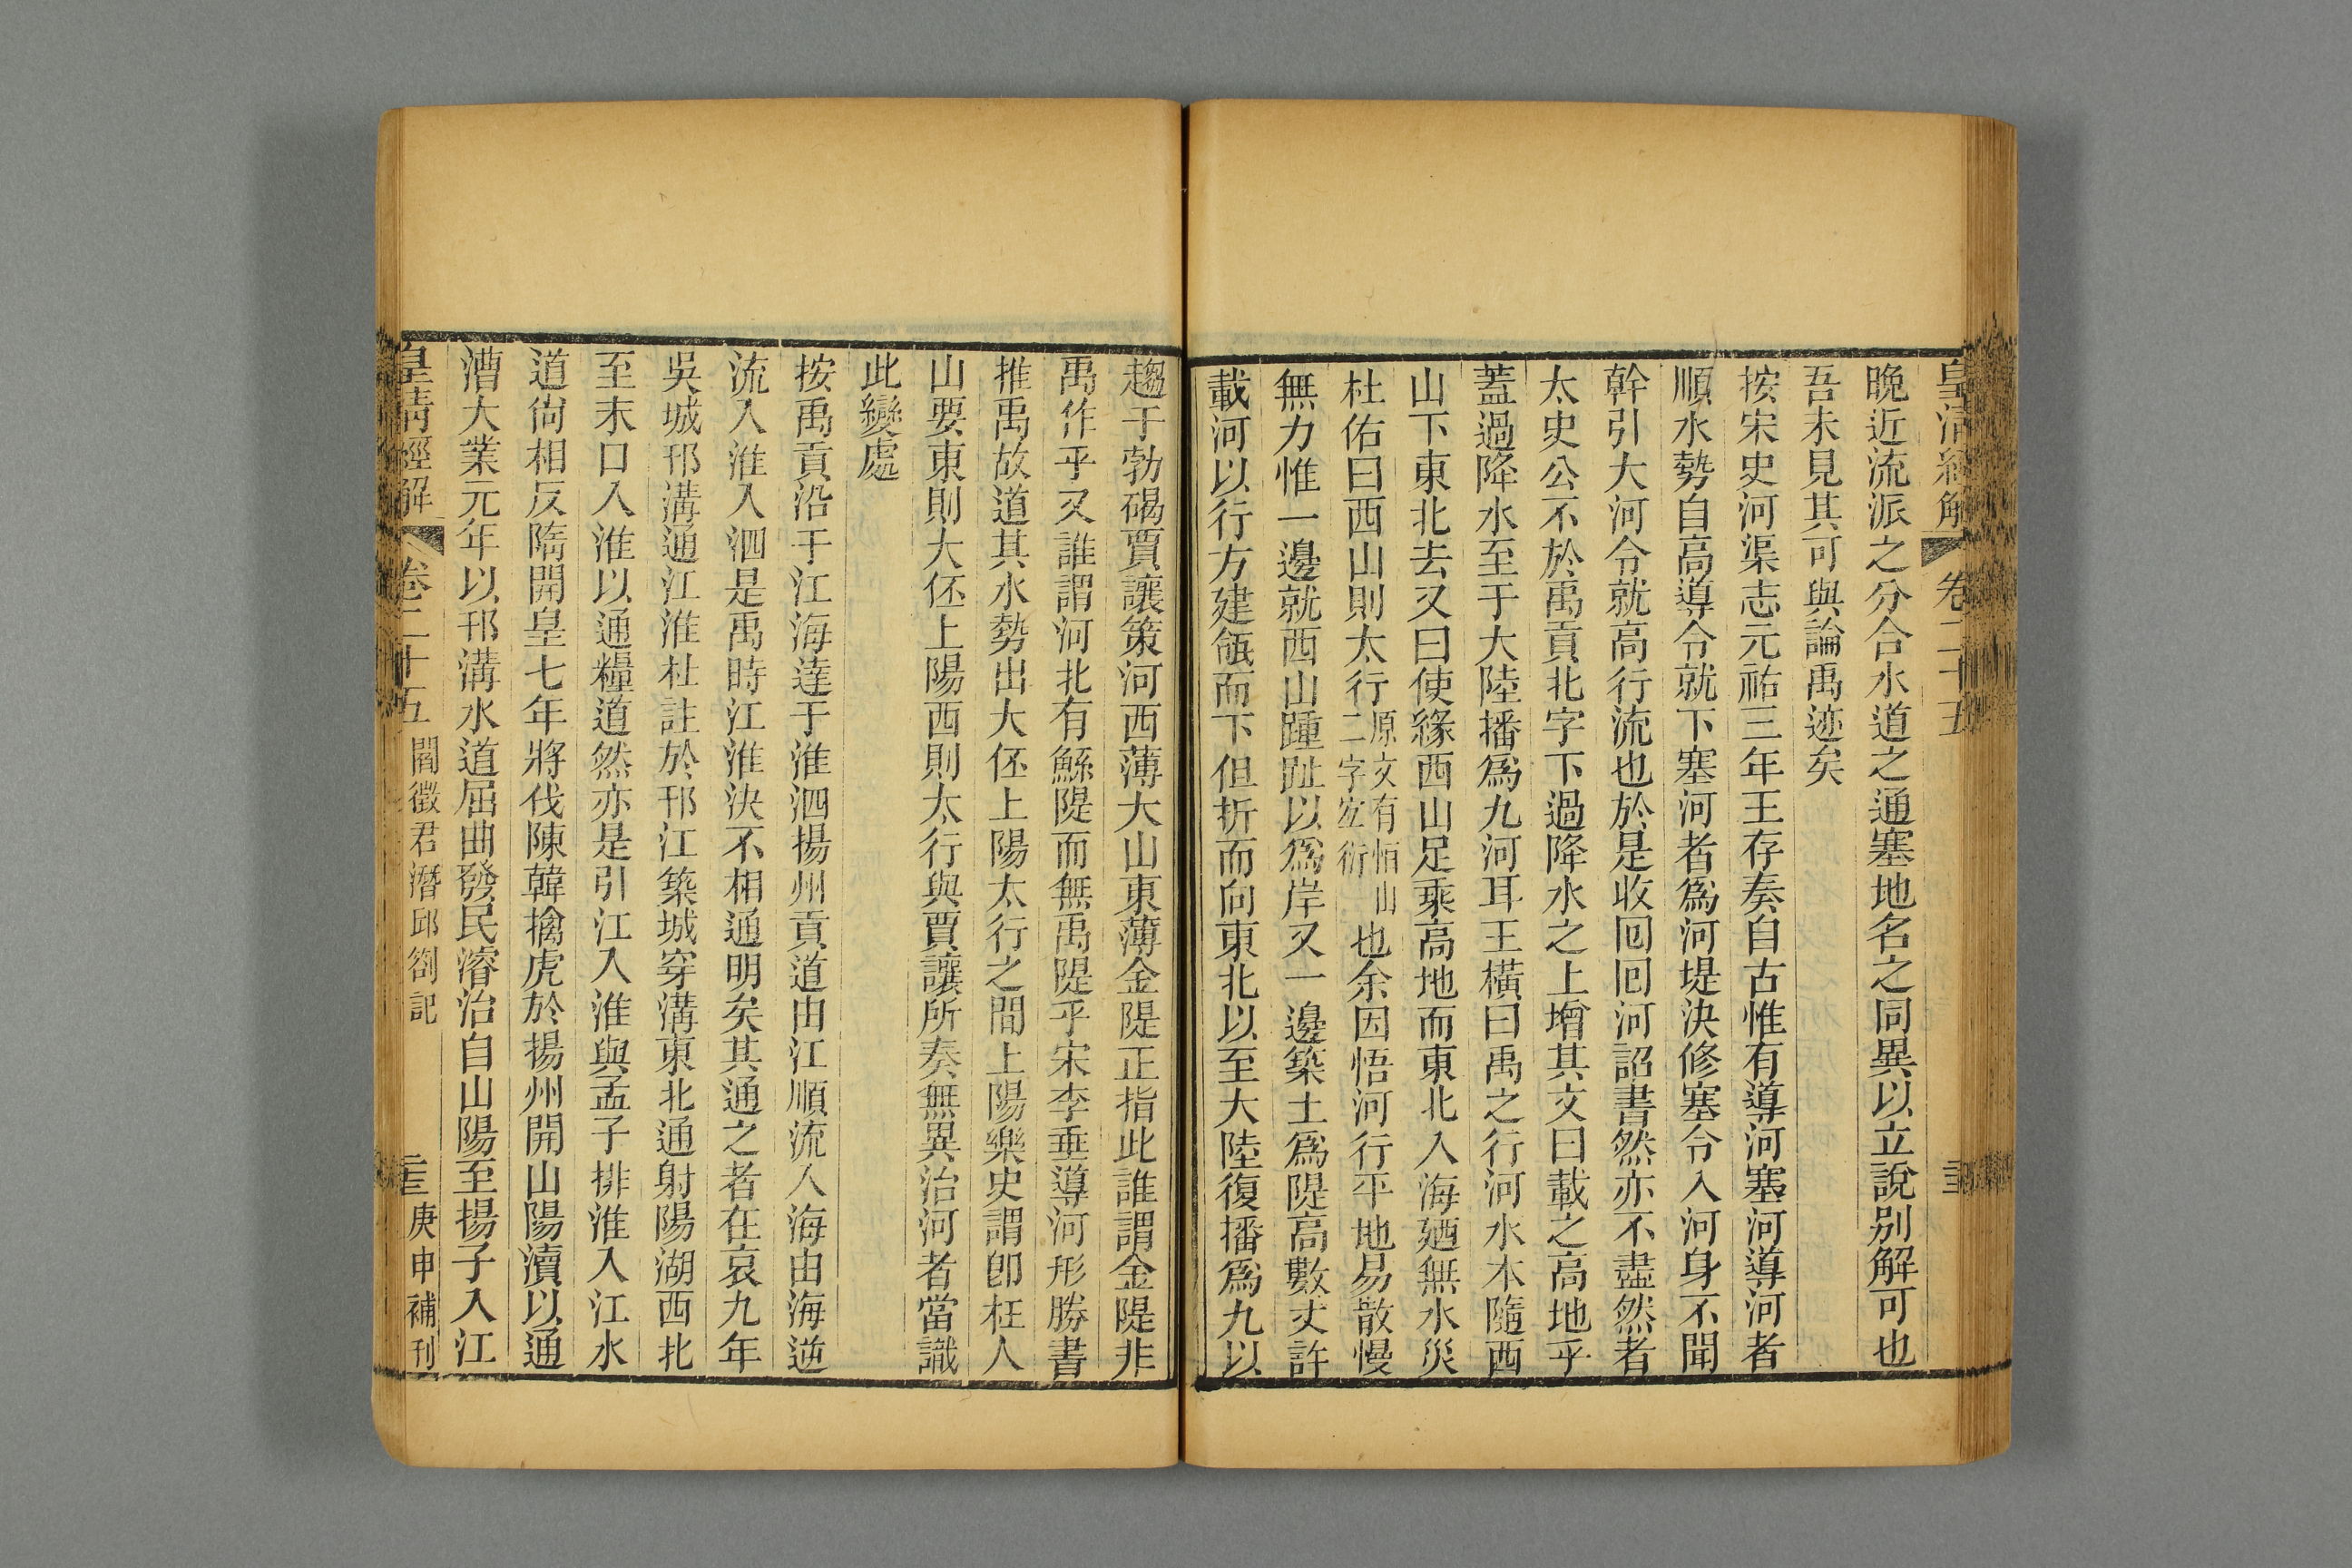 皇清經解 卷二十五
晚近流派之分合水道之通塞地名之同異以立說別解可也
吾未見其可與論禹迹矣
按宋史河渠志元祐三年王存奏自古惟有導河塞河導河者
順水勢自高導令就下塞河者爲河堤決修塞令入河身不聞
幹引大河令就高行流也於是收回回河詔書然亦不盡然者
太史公不於禹貢北字下過降水之上增其文曰載之高地乎
蓋過降水至于大陸播爲九河耳王橫曰禹之行河水本隨西
山下東北去又曰使緣西山足乘高地而東北入海廼無水災
杜佑曰西山則太行原文有恒山二字宜衍也余因悟河行平地易散慢
無力惟一邊就西山踵趾以爲岸又一邊築土爲隄高數丈許
載河以行方建瓴而下但折而向東北以至大陸復播爲九以
趨于勃碣賈讓策河西薄大山東薄金隄正指此誰謂金隄非
禹作乎又誰謂河北有鯀隄而無禹隄乎宋李垂導河形勝書
推禹故道其水勢出大伾上陽太行之間上陽樂史謂卽枉人
山要東則大伾上陽西則太行與賈讓所奏無異治河者當識
此變處
按禹貢沿于江海達于淮泗揚州貢道由江順流入海由海逆
流入淮入泗是禹時江淮決不相通明矣其通之者在哀九年
吳城邗溝通江淮杜註於邗江築城穿溝東北通射陽湖西北
至末口入淮以通糧道然亦是引江入淮與孟子排淮入江水
道尙相反隋開皇七年將伐陳韓擒虎於揚州開山陽瀆以通
漕大業元年以邗溝水道屈曲發民濬治自山陽至揚子入江
皇清經解 卷二十五 閻徵君潛邱劄記 庚申補刊